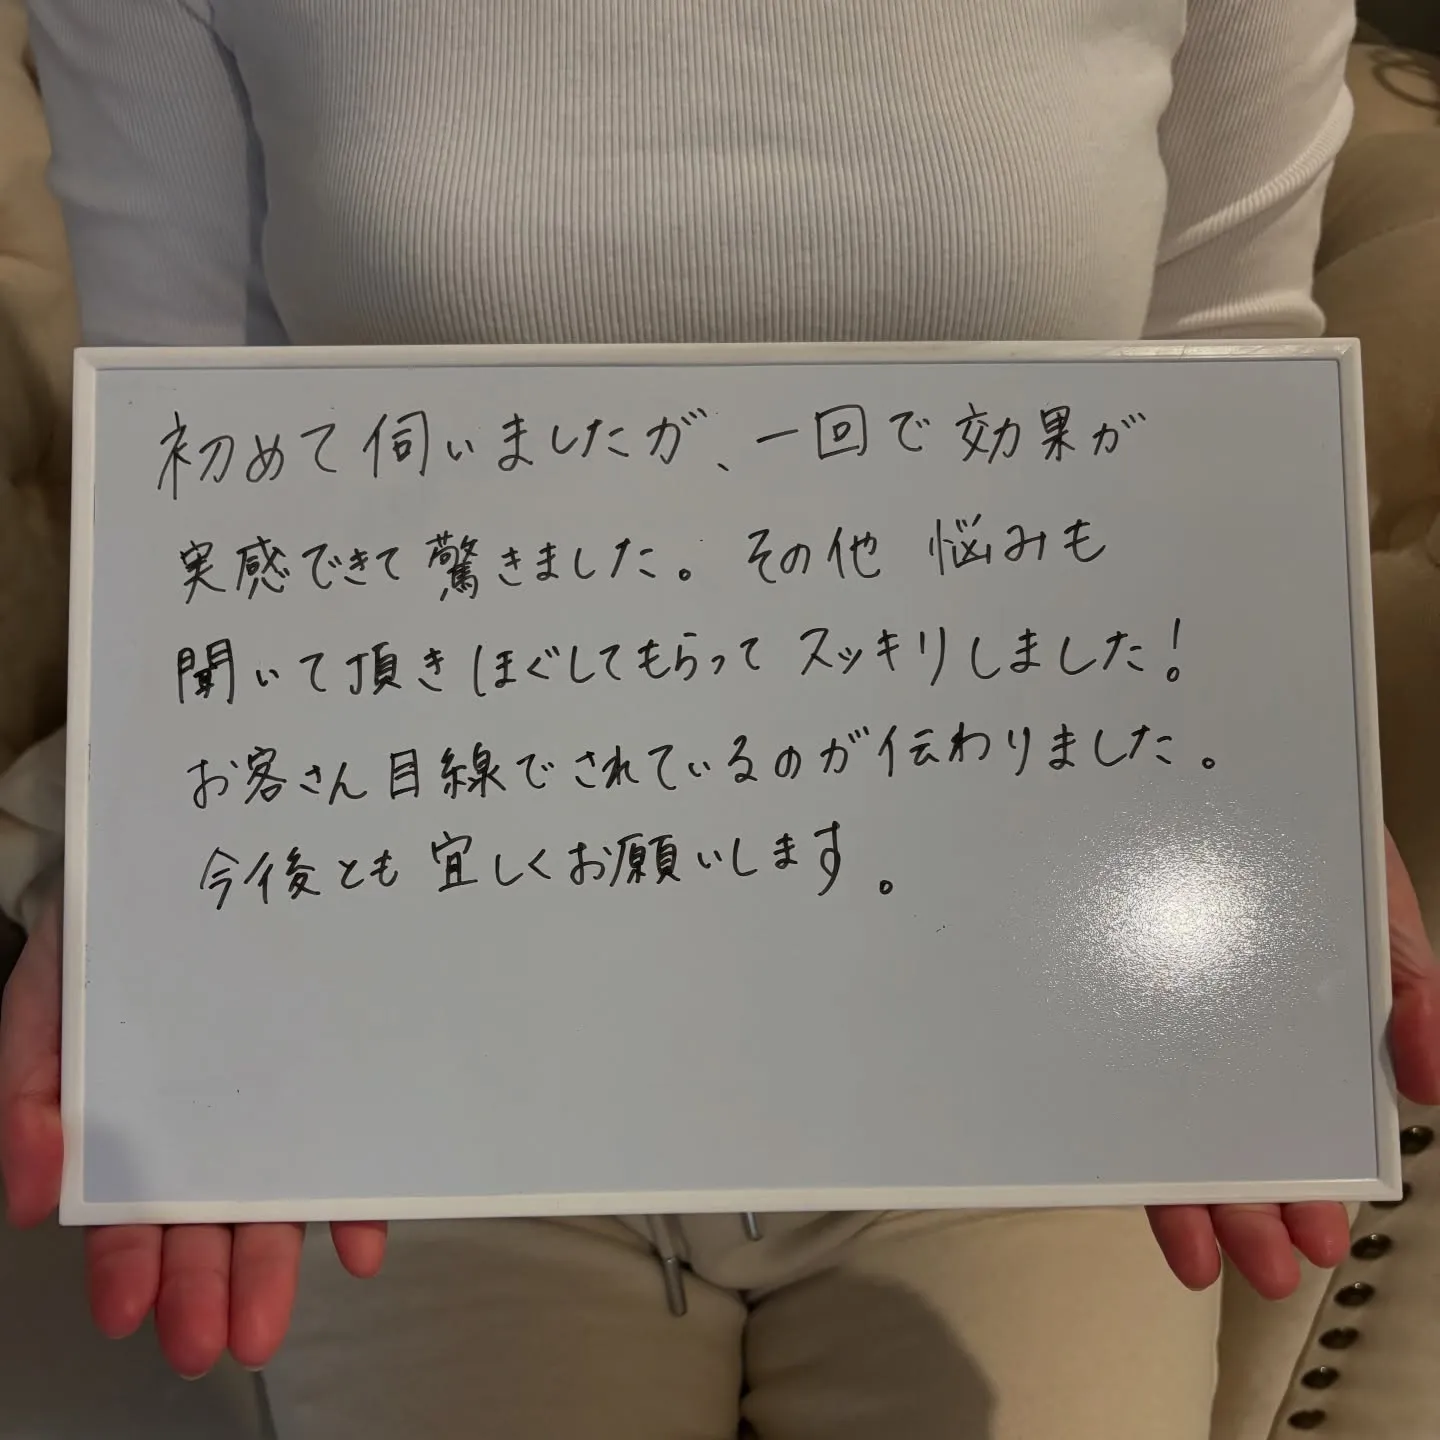 初めて伺いましたが、一回で効果が
実感できて驚きました。その他 悩みも
聞いて頂きほぐしてもらって スッキリしました!
お客さん目線でされているのが伝わりました。
今後とも宜しくお願いします。